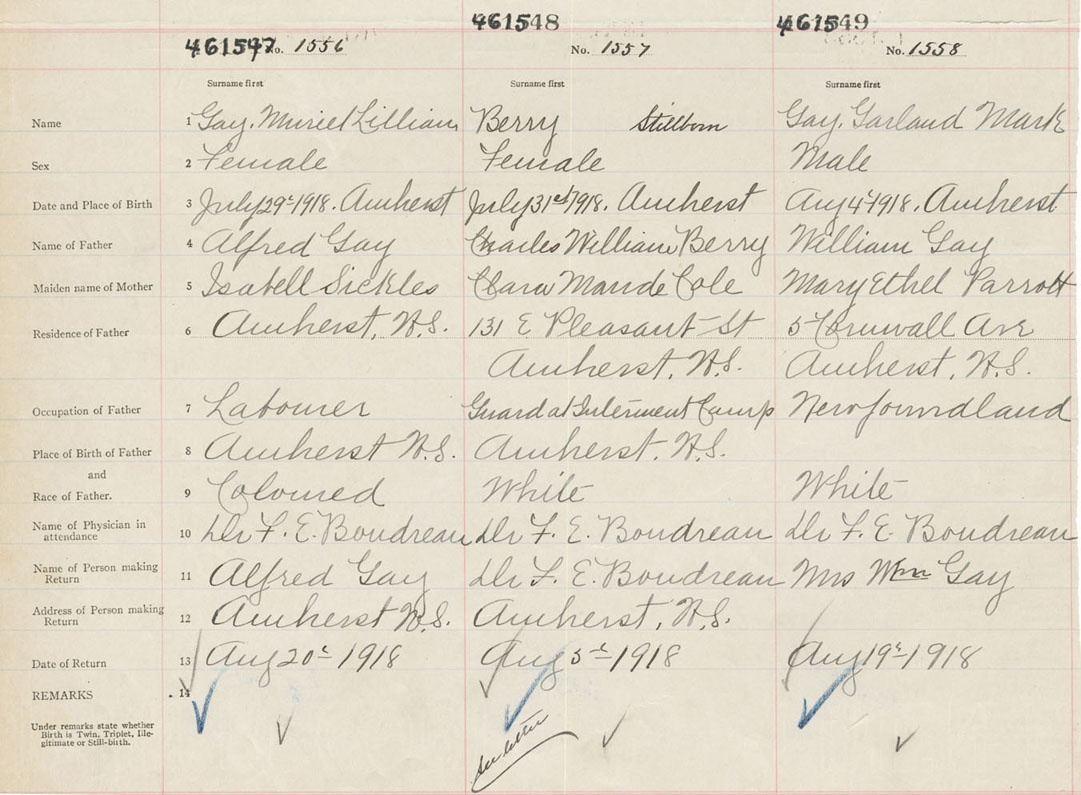 461547 461548 461549
No. 1556 No. 1557 No. 1558
Surname first Surname first Surname first
Name 1 Gay, Muriel Lillian Berry Stillborn Gay, Garland Mark
Sex 2 Female Female Male
Date and Place of Birth 3 July 29t 1918. Amherst July 31st 1918. Amherst Aug 4t 1918. Amherst
Name of Father 4 Alfred Gay Charles William Berry William Gay
Maiden name of Mother 5 Isabell Sickles Clara Maude Cole Mary Ethel Parrott
Residence of Father 6 Amherst, N.S. 131 E Pleasant St 5 Cornwall Ave
Amherst, N.S. Amherst, N.S.
Occupation of Father 7 Labourer Guard at Interment Camp Newfoundland
Place of Birth of Father 8 Amherst N.S. Amherst, N.S.
and
Race of Father. 9 Coloured White White
Name of Physician in
attendance 10 Dr F. E. Boudreau Dr F. E. Boudreau Dr F. E. Boudreau
Name of Person making
Return 11 Alfred Gay Dr F. E. Boudreau Mrs Wm Gay
Address of Person making
Return 12 Amherst N.S. Amherst, N.S.
Date of Return 13 Aug 20t 1918 Aug 5t 1918 Aug 19t 1918
REMARKS 14
Under remarks state whether
Birth is Twin, Triplet, Ille-
gitimate or Still-birth.
See letter